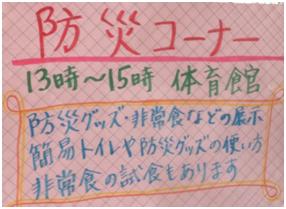 防災コーナー
13時～15時 体育館
防災グッズ・非常食などの展示
簡易トイレや防災グッズの使い方
非常食の試食もあります